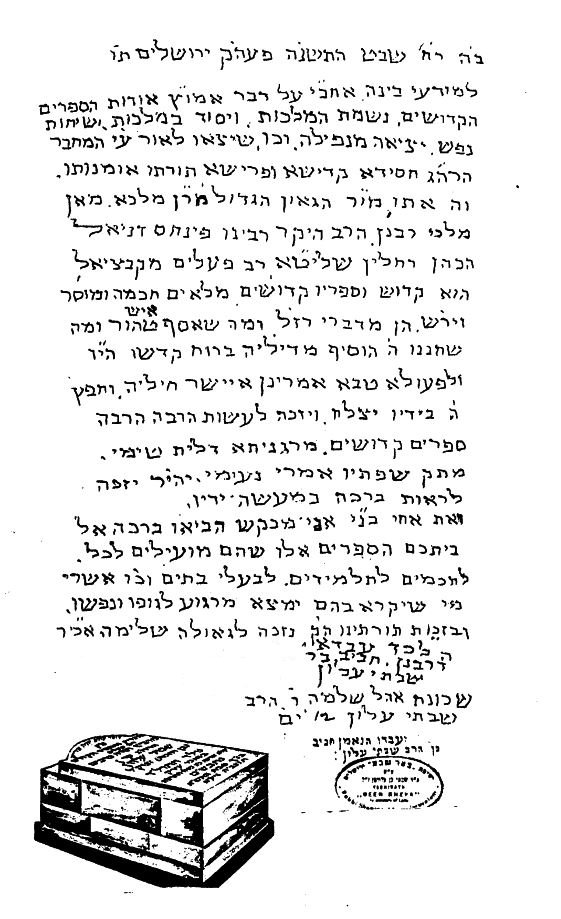 ב״ה ר״ח שבט התשנ״ה פעה״ק ירושלים תו׳
למודעי בינה, אחבי על דבר אמו״ץ אודות הספרים
הקדושים, נשמת המלכות, ויסוד במלכות, ושיחות
נפש, יציאה מנפילה, וכו, שיצאו לאור ע״י המחבר
הרה״ג חסידא קדישא ופרישא תורתו אומנותו.
וה אתו, מו״ר הגאון הגדול מרן מלכא, מאן
מלכי רבנן, הרב היקר רבינו פינחס דניאל
הכהן רחלין שליט״א רב פעלים מקבציאל
הוא קדוש וספריו קדושים מלאים חכמה ומוסר
ויר״ש, הן מדברי רז״ל ומה שאסף איש טהור ומה
שחננו ה׳ הוסיף מדיליה ברוח קדשו הי״ו
ולפועלא טבא אמרינן איישר חיליה, וחפץ
ה׳ בידיו יצלח, ויזכה לעשות הרבה הרבה
ספרים קדושים, מרגניתא דלית טימי,
מתק שפתיו אמרי נעימי, יה״ר יזכה
לראות ברכה במעשה ידיו,
ואת אחי בני אני מבקש הביאו ברכה אל
ביתכם הספרים אלו שהם מועילים לכל,
לחכמים לתלמידים, לבעלי בתים וכו׳ אשרי
מי שיקרא בהם ימצא מרגוע לגופו ונפשו,
ובזכות תורתינו הק׳ נזכה לגאולה שלימה אכי״ר
עבדא
דרבנן, חביב בר
שבתי עלון
שכונת אהל שלמה ר׳ הרב
שבתי עלון 12 ים
עבדו הנאמן חביב
בן הרב שבתי עלון
YESHIBATH
"BEER SHEVA"